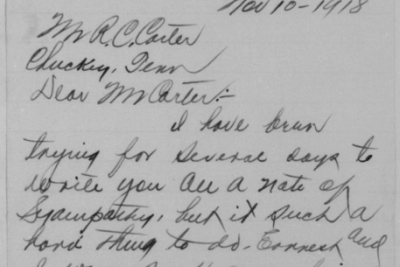 Nov 10-1918
Mr R.C. Carter
Chuckey, Tenn
Dear Mr Carter:-
I have been
trying for several days to
write you all a note of
Sympathy, but it such a
hard thing to do. Earnest and